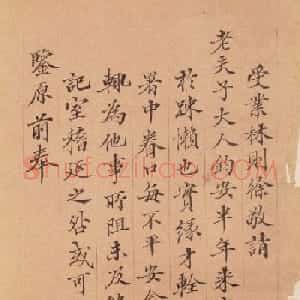 受業林則徐敬請
老夫子大人鈞安半年来
於踈懶也實緣才輇
署中眷口每不平安
輒為他事所阻未及
記室稽延之咎或可
鑒原前奉